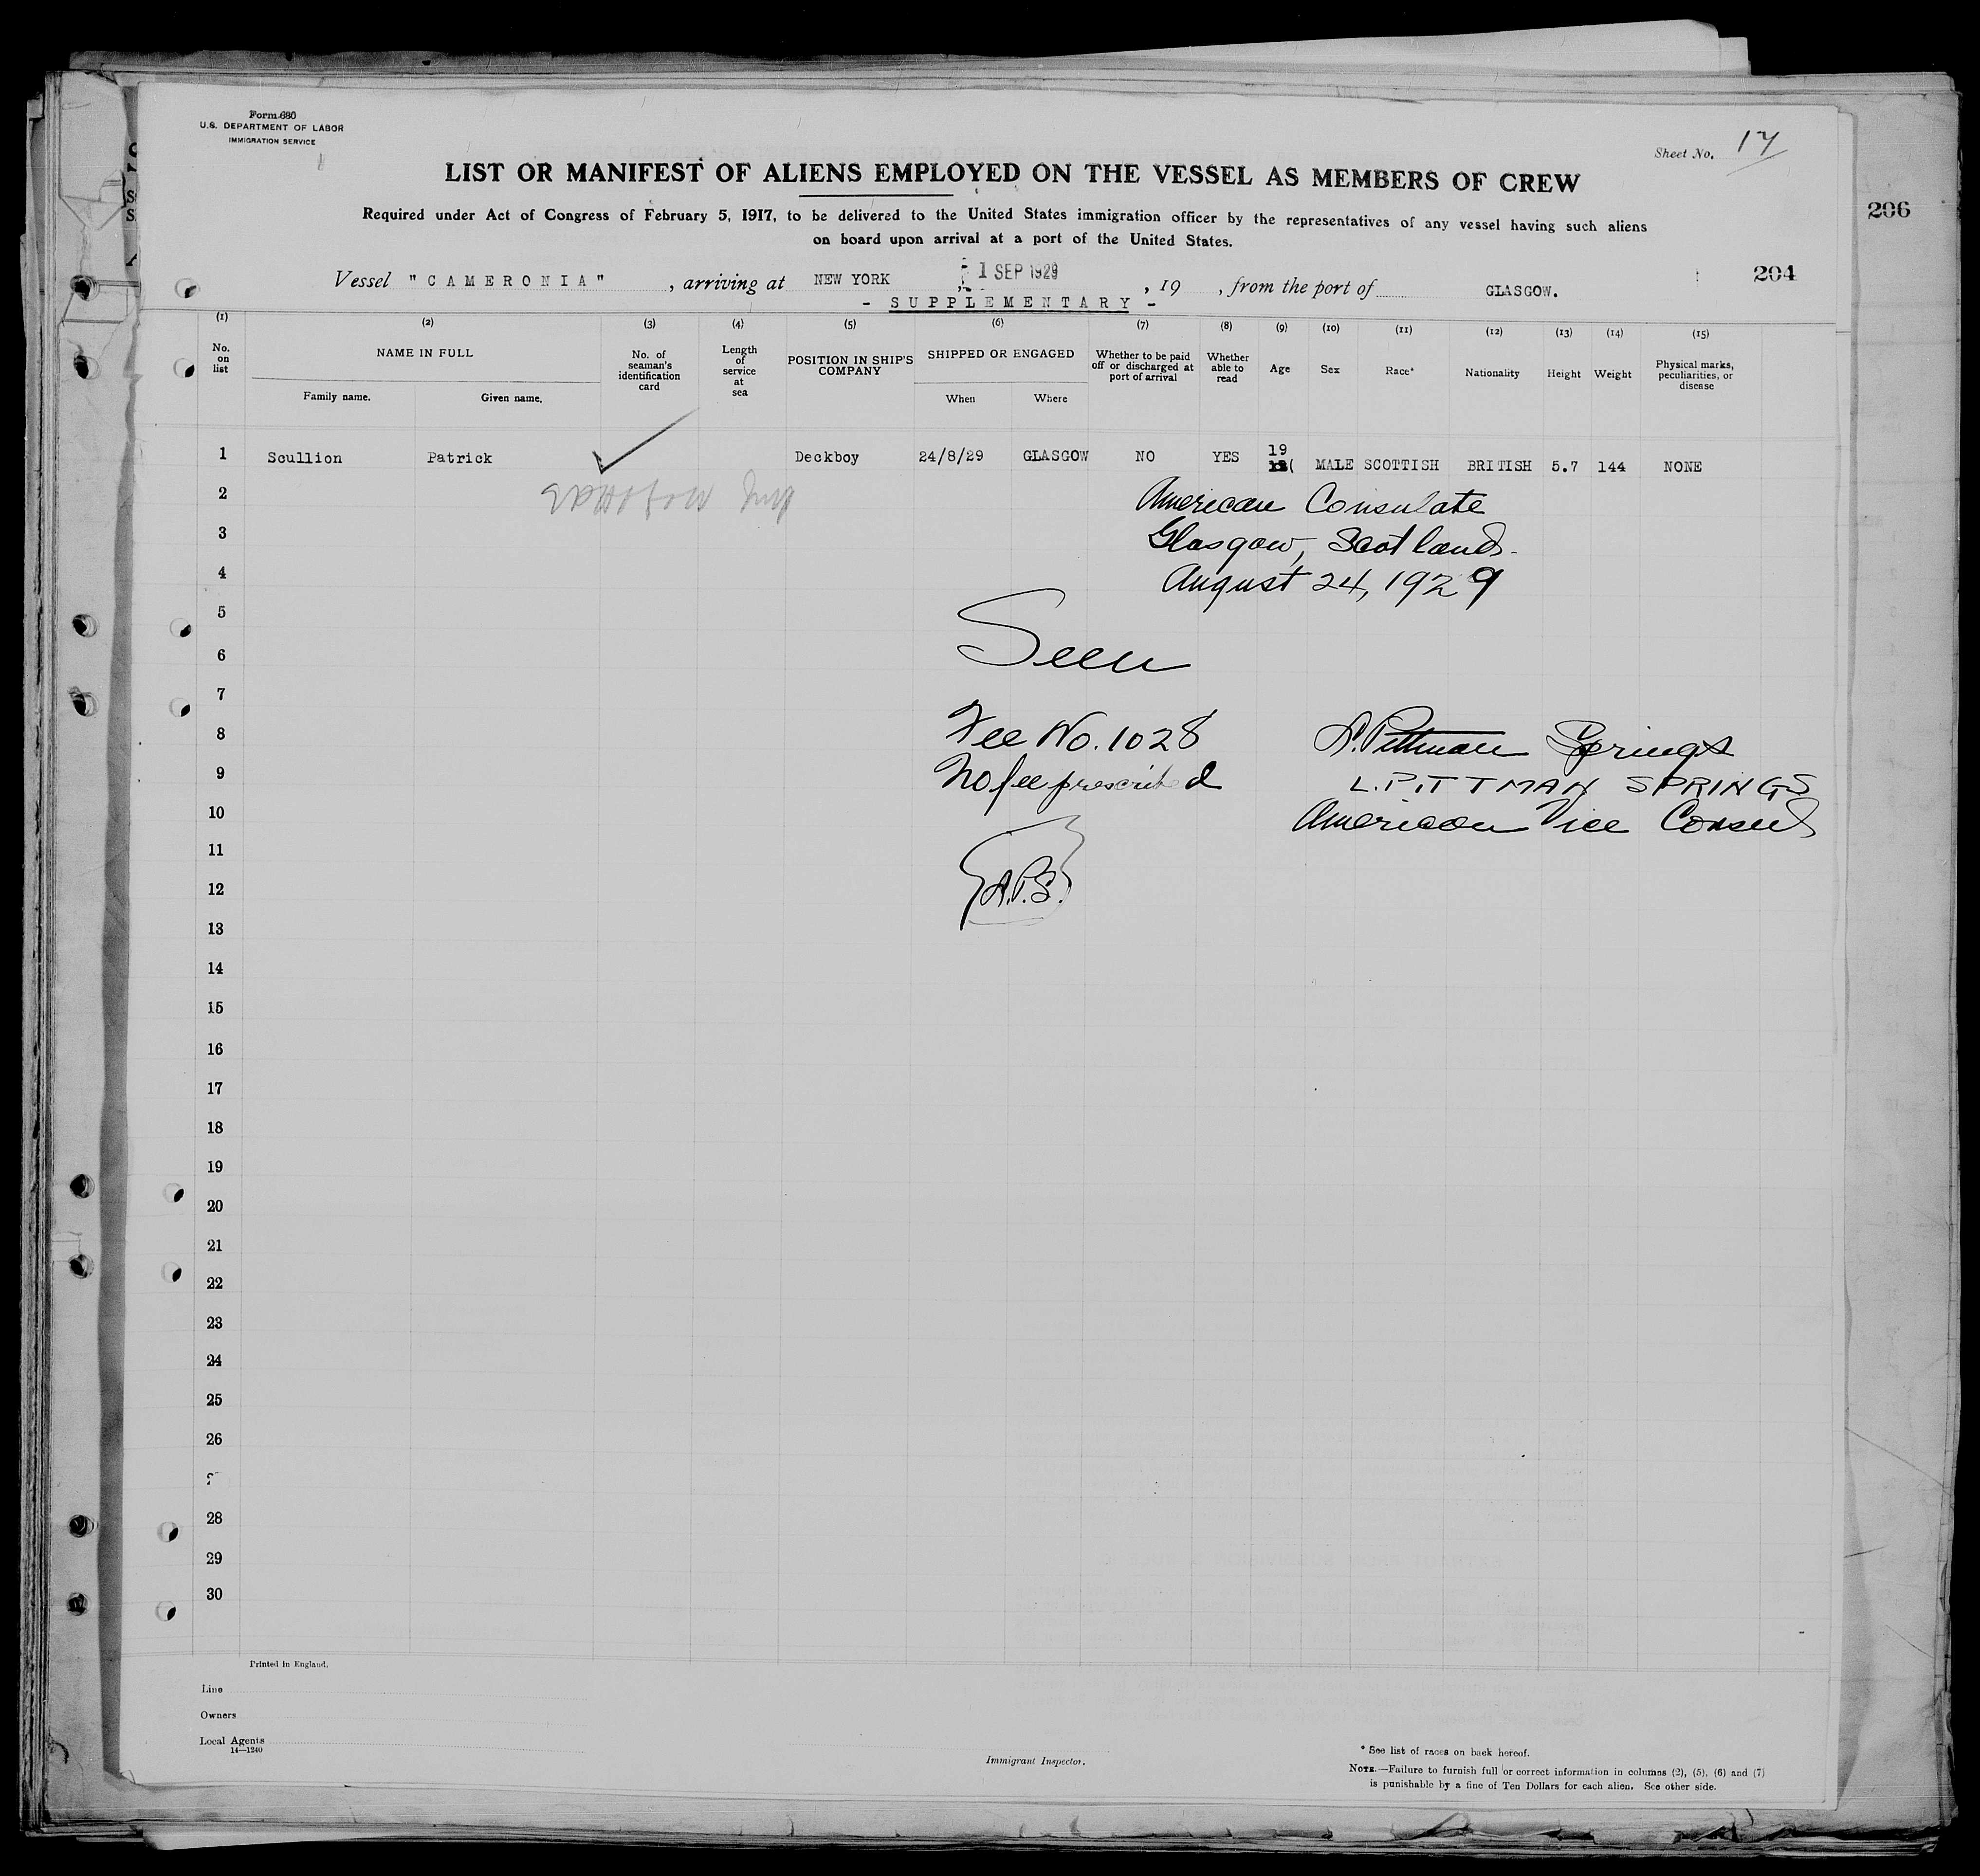 Form 680
U.S. DEPARTMENT OF LABOR
IMMIGRATION SERVICE
Sheet No. 17
LIST OR MANIFEST OF ALIENS EMPLOYED ON THE VESSEL AS MEMBERS OF CREW
Required under Act of Congress of February 5, 1917, to be delivered to the United States immigration officer by the representatives of any vessel having such aliens
on board upon arrival at a port of the United States.
206
204
Vessel "CAMERONIA", arriving at NEW YORK, 1 SEP 1929, 19 , from the port of GLASGOW.
- SUPPLEMENTARY -
(1) (2) (3) (4) (5) (6) (7) (8) (9) (10) (11) (12) (13) (14) (15)
No. on list
NAME IN FULL
Family name. Given name.
No. of seaman's identification card
Length of service at sea
POSITION IN SHIP'S COMPANY
SHIPPED OR ENGAGED
When Where
Whether to be paid off or discharged at port of arrival
Whether able to read
Age
Sex
Race*
Nationality
Height
Weight
Physical marks, peculiarities, or disease
1 Scullion Patrick Deckboy 24/8/29 GLASGOW NO YES 19 MALE SCOTTISH BRITISH 5.7 144 NONE
2 American Consulate
3 Glasgow, Scotland.
4 August 24, 1929
5
6 Seen
7
8 Fee No. 1028 L. Pittman Springs
9 No fee prescribed L. PITTMAN SPRINGS
10 American Vice Consul
11
12 L.P.S.
13
14
15
16
17
18
19
20
21
22
23
24
25
26
28
29
30
Printed in England.
Line
Owners
Local Agents
14—1240
Immigrant Inspector.
* See list of races on back hereof.
NOTE.—Failure to furnish full or correct information in columns (2), (5), (6) and (7)
is punishable by a fine of Ten Dollars for each alien. See other side.